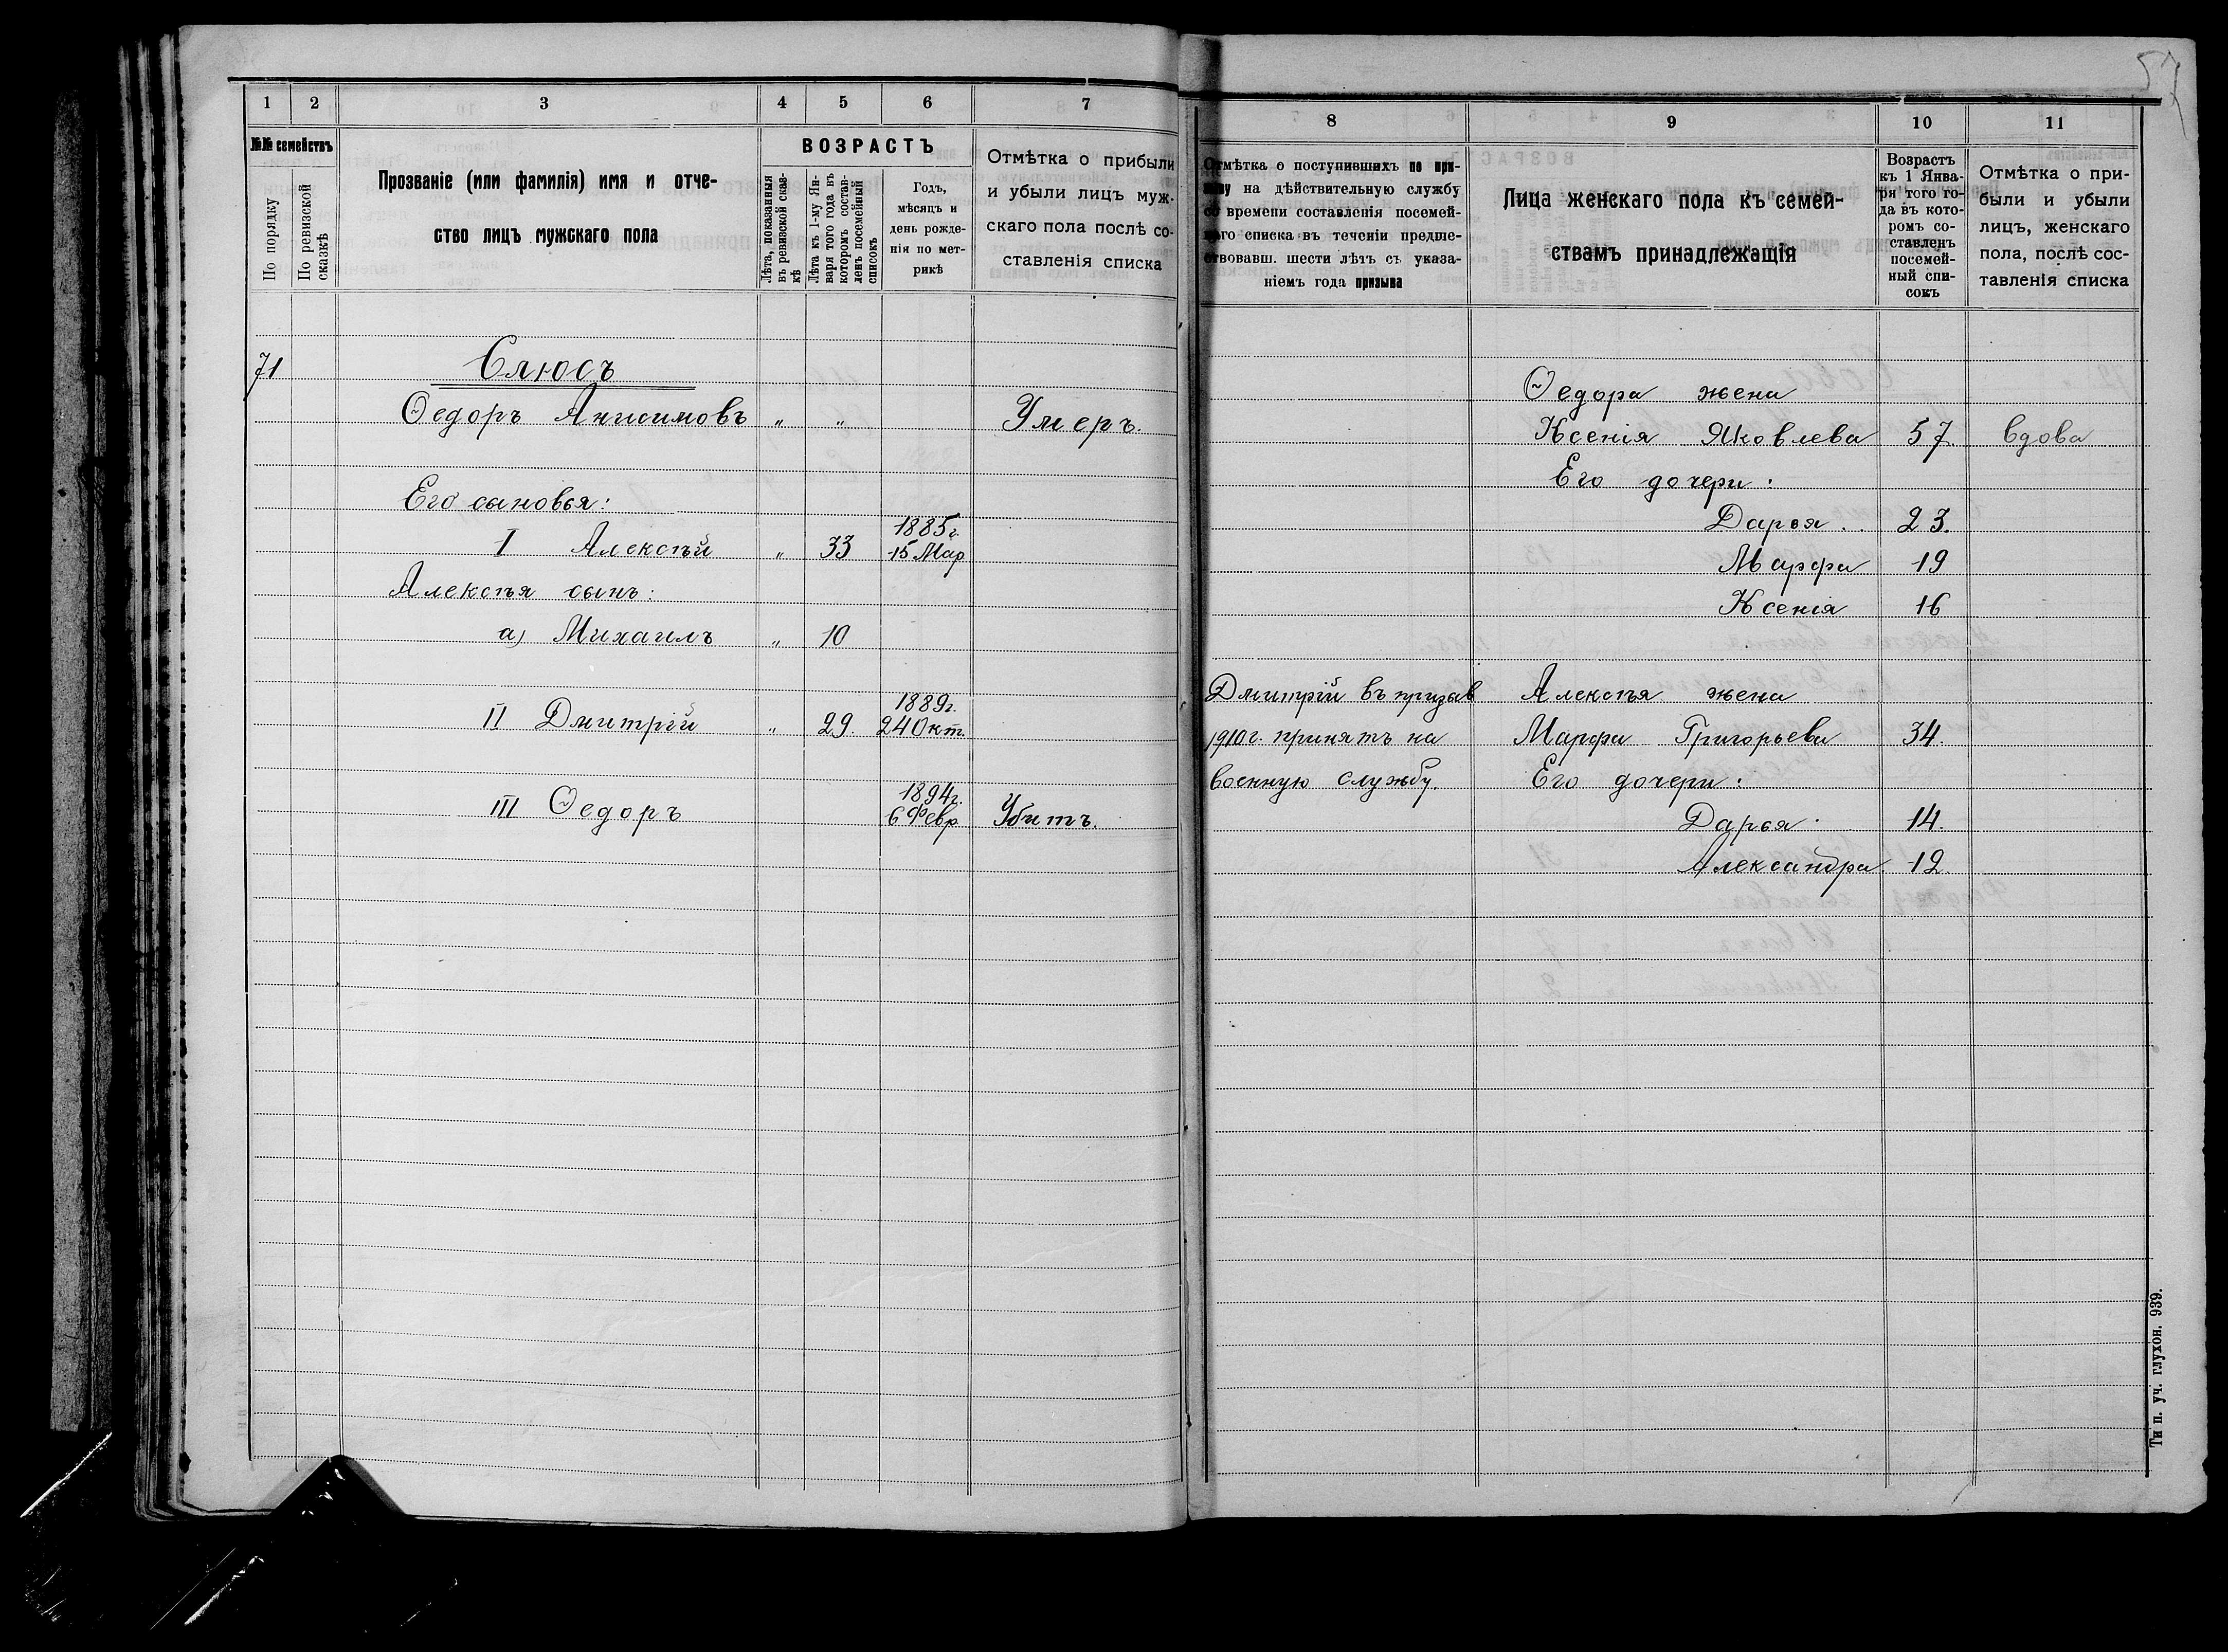 57
1
2
3
4
5
6
7
№№ семействъ
По порядку
По ревизской сказкѣ
Прозваніе (или фамилія) имя и отче-
ство лицъ мужскаго пола
ВОЗРАСТЪ
Лѣта, показанныя
въ ревизской сказ-
кѣ
Лѣта къ 1-му Ян-
варя того года въ
которомъ состав-
ленъ посемейный
списокъ
Годъ,
мѣсяцъ и
день рожде-
нія по мет-
рикѣ
Отмѣтка о прибыли
и убыли лицъ муж-
скаго пола послѣ со-
ставленія списка
71
Слюсъ
Ѳедоръ Анисимовъ " " Умеръ.
Его сыновья:
1885г.
I Алексѣй " 33 15 Мар
Алексѣя сынъ:
а) Михаилъ " 10
1889г.
II Дмитрій " 29. 24 Окт.
1894г.
III Ѳедоръ 6 Февр Убитъ.
8
9
10
11
Отмѣтка о поступившихъ по при-
зыву на дѣйствительную службу
со времени составленія посемей-
наго списка въ теченіи предше-
ствовавш. шести лѣтъ съ указа-
ніемъ года призыва
Лица женскаго пола къ семей-
ствамъ принадлежащія
Возрастъ
къ 1 Янва-
ря того го-
да въ кото-
ромъ со-
ставленъ
посемей-
ный спи-
сокъ
Отмѣтка о при-
были и убыли
лицъ, женскаго
пола, послѣ сос-
тавленія списка
Ѳедора жена
Ксенія Яковлева 57 вдова
Его дочери:
Дарья. 23.
Марфа 19
Ксенія 16
Дмитрій въ призыв Алексѣя жена
1910г. принятъ на Марфа Григорьева 34.
военную службу. Его дочери:
Дарья 14.
Александра 12.
Тип. уч. глухон. 939.